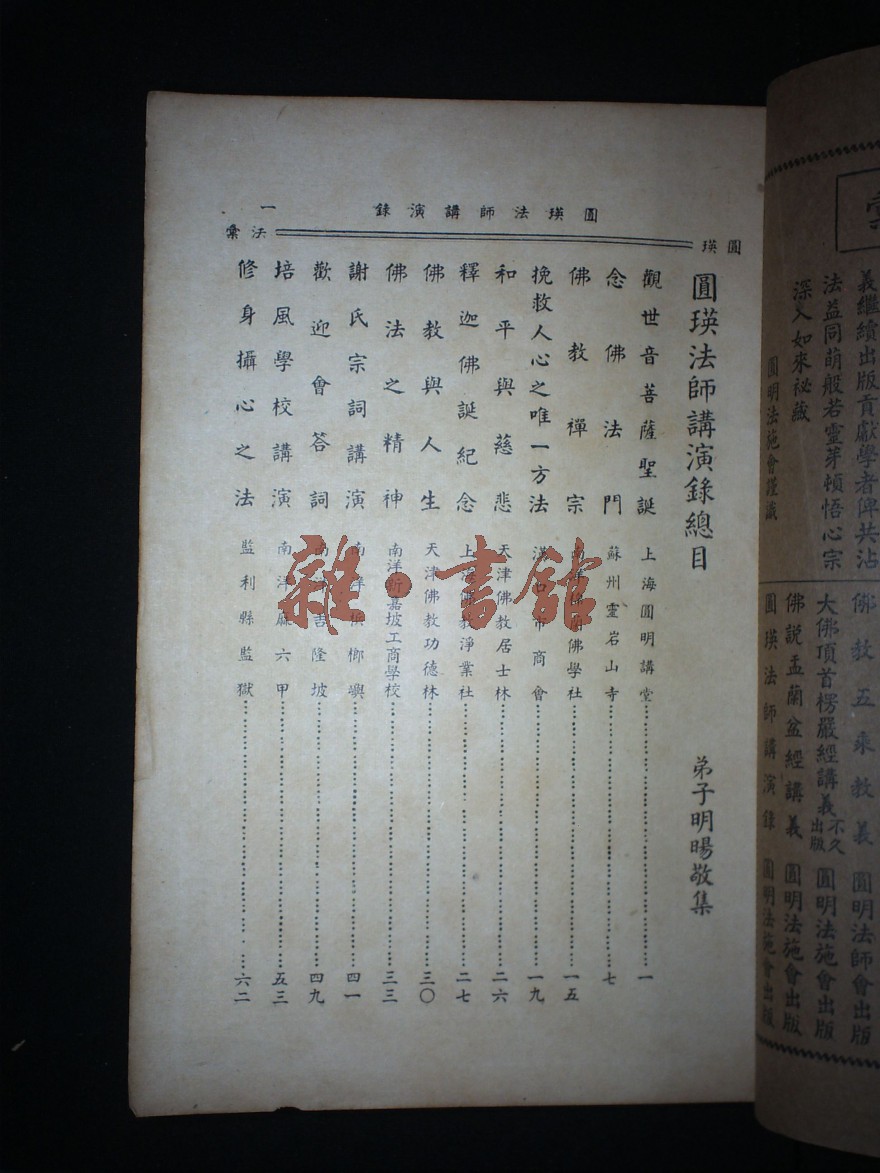 圓瑛法師講演錄 一
圓瑛法彙
圓瑛法師講演錄總目
弟子明暘敬集
觀世音菩薩聖誕 上海圓明講堂 一
念佛法門 蘇州靈岩山寺 七
佛教禪宗 佛學社 一五
挽救人心之唯一方法 漢口市商會 一九
和平與慈悲 天津佛教居士林 二六
釋迦佛誕紀念 上海佛教淨業社 二七
佛教與人生 天津佛教功德林 三〇
佛法之精神 南洋新嘉坡工商學校 三三
謝氏宗詞講演 南洋檳榔嶼 四一
歡迎會答詞 南洋吉隆坡 四九
培風學校講演 南洋麻六甲 五三
修身攝心之法 監利縣監獄 六二
雜·書館
義繼續出版貢獻學者俾共沾
法益同萌般若靈芽頓悟心宗
深入如來祕藏
圓明法施會謹識
佛教五乘教義 圓明法師會出版
大佛頂首楞嚴經講義 不久出版 圓明法施會出版
佛說盂蘭盆經講義 圓明法施會出版
圓瑛法師講演錄 圓明法施會出版